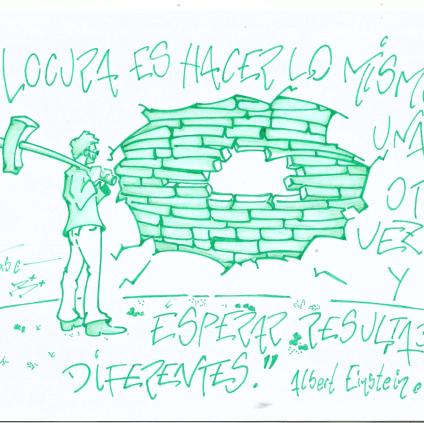 LOCURA ES HACER LO MISMO
UNA
OT
VEZ
Y
ESPERAR RESULTA
DIFERENTES."
Albert Einstein